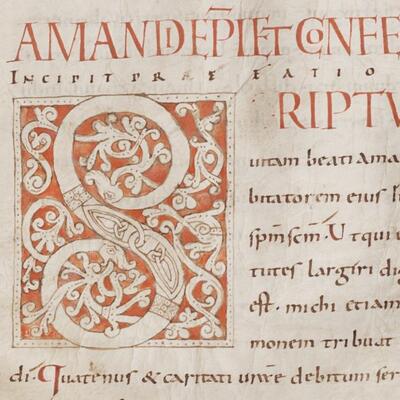 AMANDI EP̄I ET CONFE
INCIPIT PRAEFATIO
S
RIPTV
uitam beati ama
bitatorem eius
sp̄m sc̄m. Ut qui
tutes largiri di
est. michi etiam
monem tribuat
di. Quatenus & caritati ur̄ae debitum ser